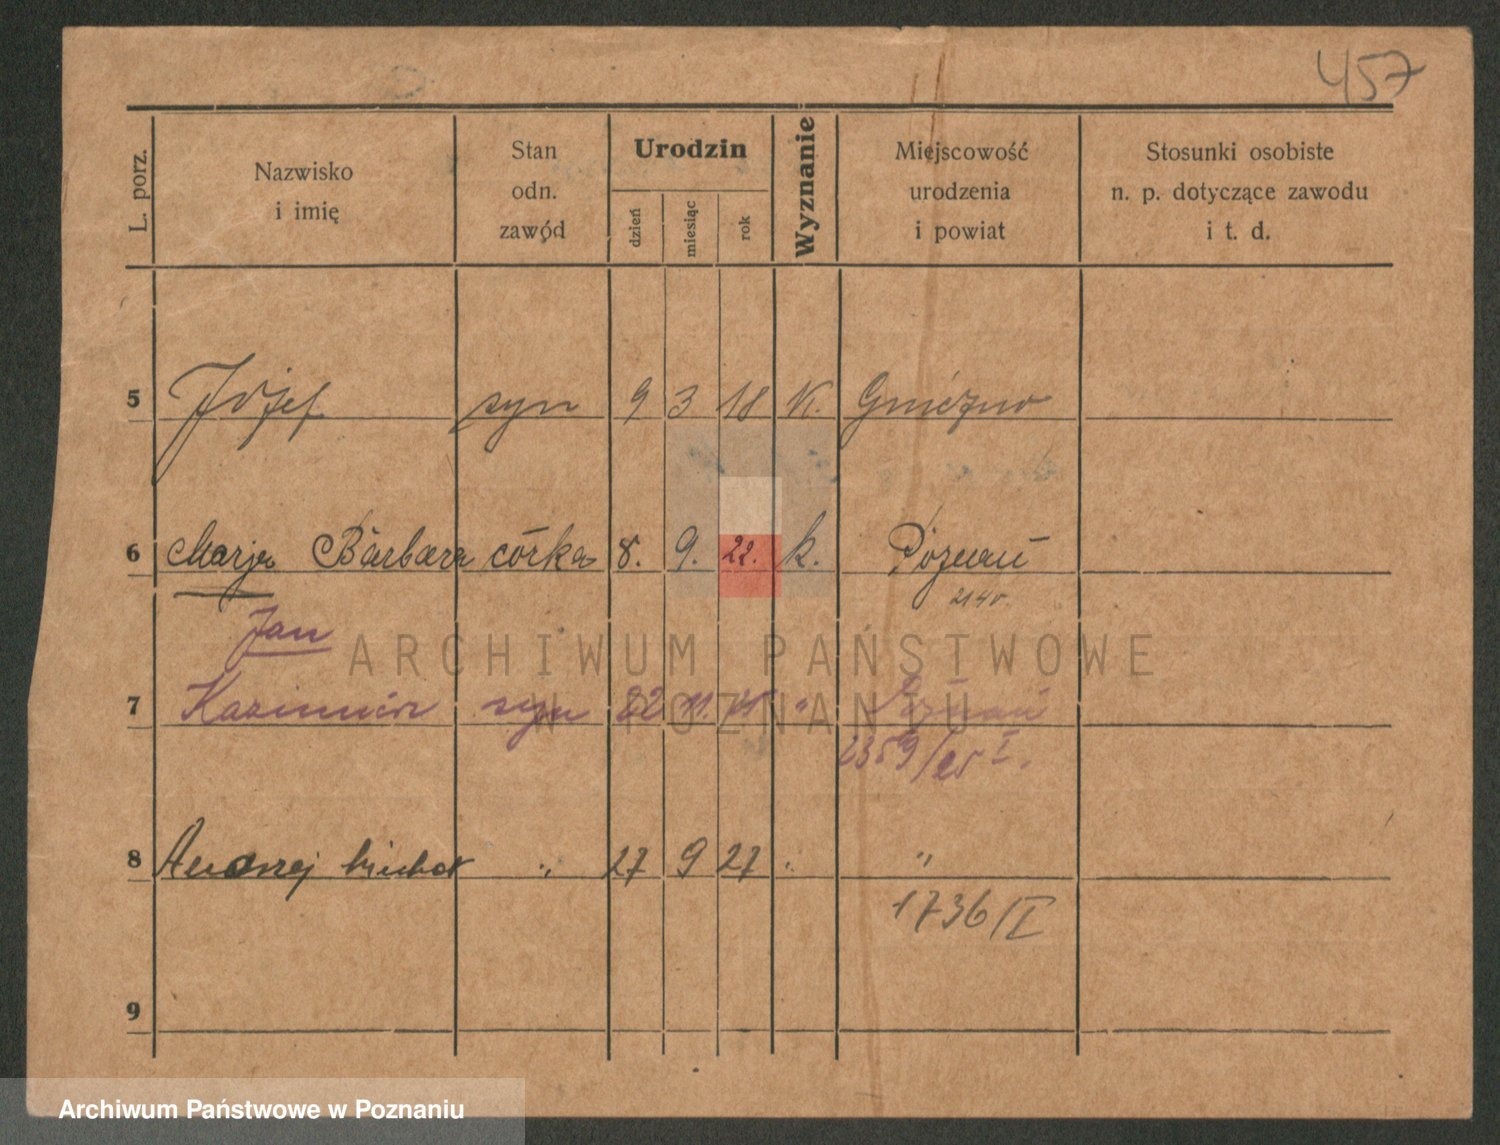 457
L. porz.
Nazwisko
i imię
Stan
odn.
zawód
Urodzin
dzień
miesiąc
rok
Wyznanie
Miejscowość
urodzenia
i powiat
Stosunki osobiste
n. p. dotyczące zawodu
i t. d.
5 Józef syn 9 3 18 K. Gniezno
6 Marja Barbara córka 8. 9. 22. k. Poznań
Jan
7 Kazimierz syn 22 11. " Poznań
2359/25 I.
8 Andrzej Michał " 27 9 27 " "
1736/I
9
ARCHIWUM PAŃSTWOWE
W POZNANIU
Archiwum Państwowe w Poznaniu